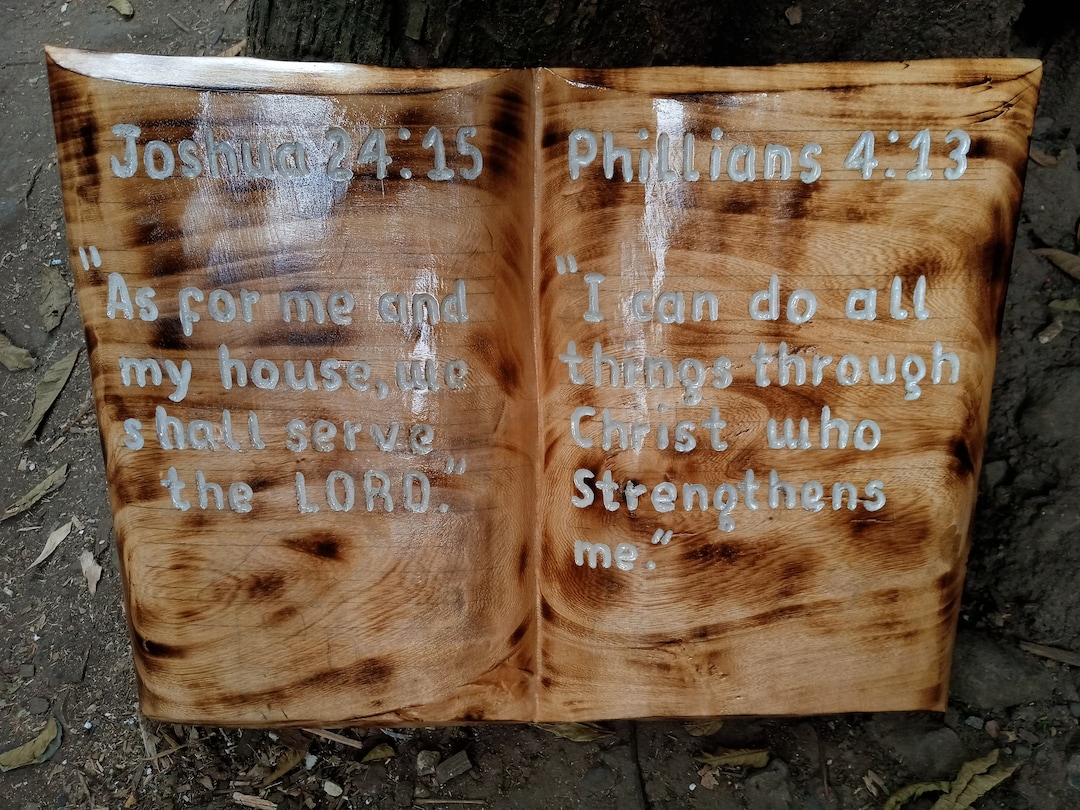 Joshua 24:15
"As for me and
my house, we
shall serve
the LORD."
Phillians 4:13
"I can do all
things through
Christ who
Strengthens
me."